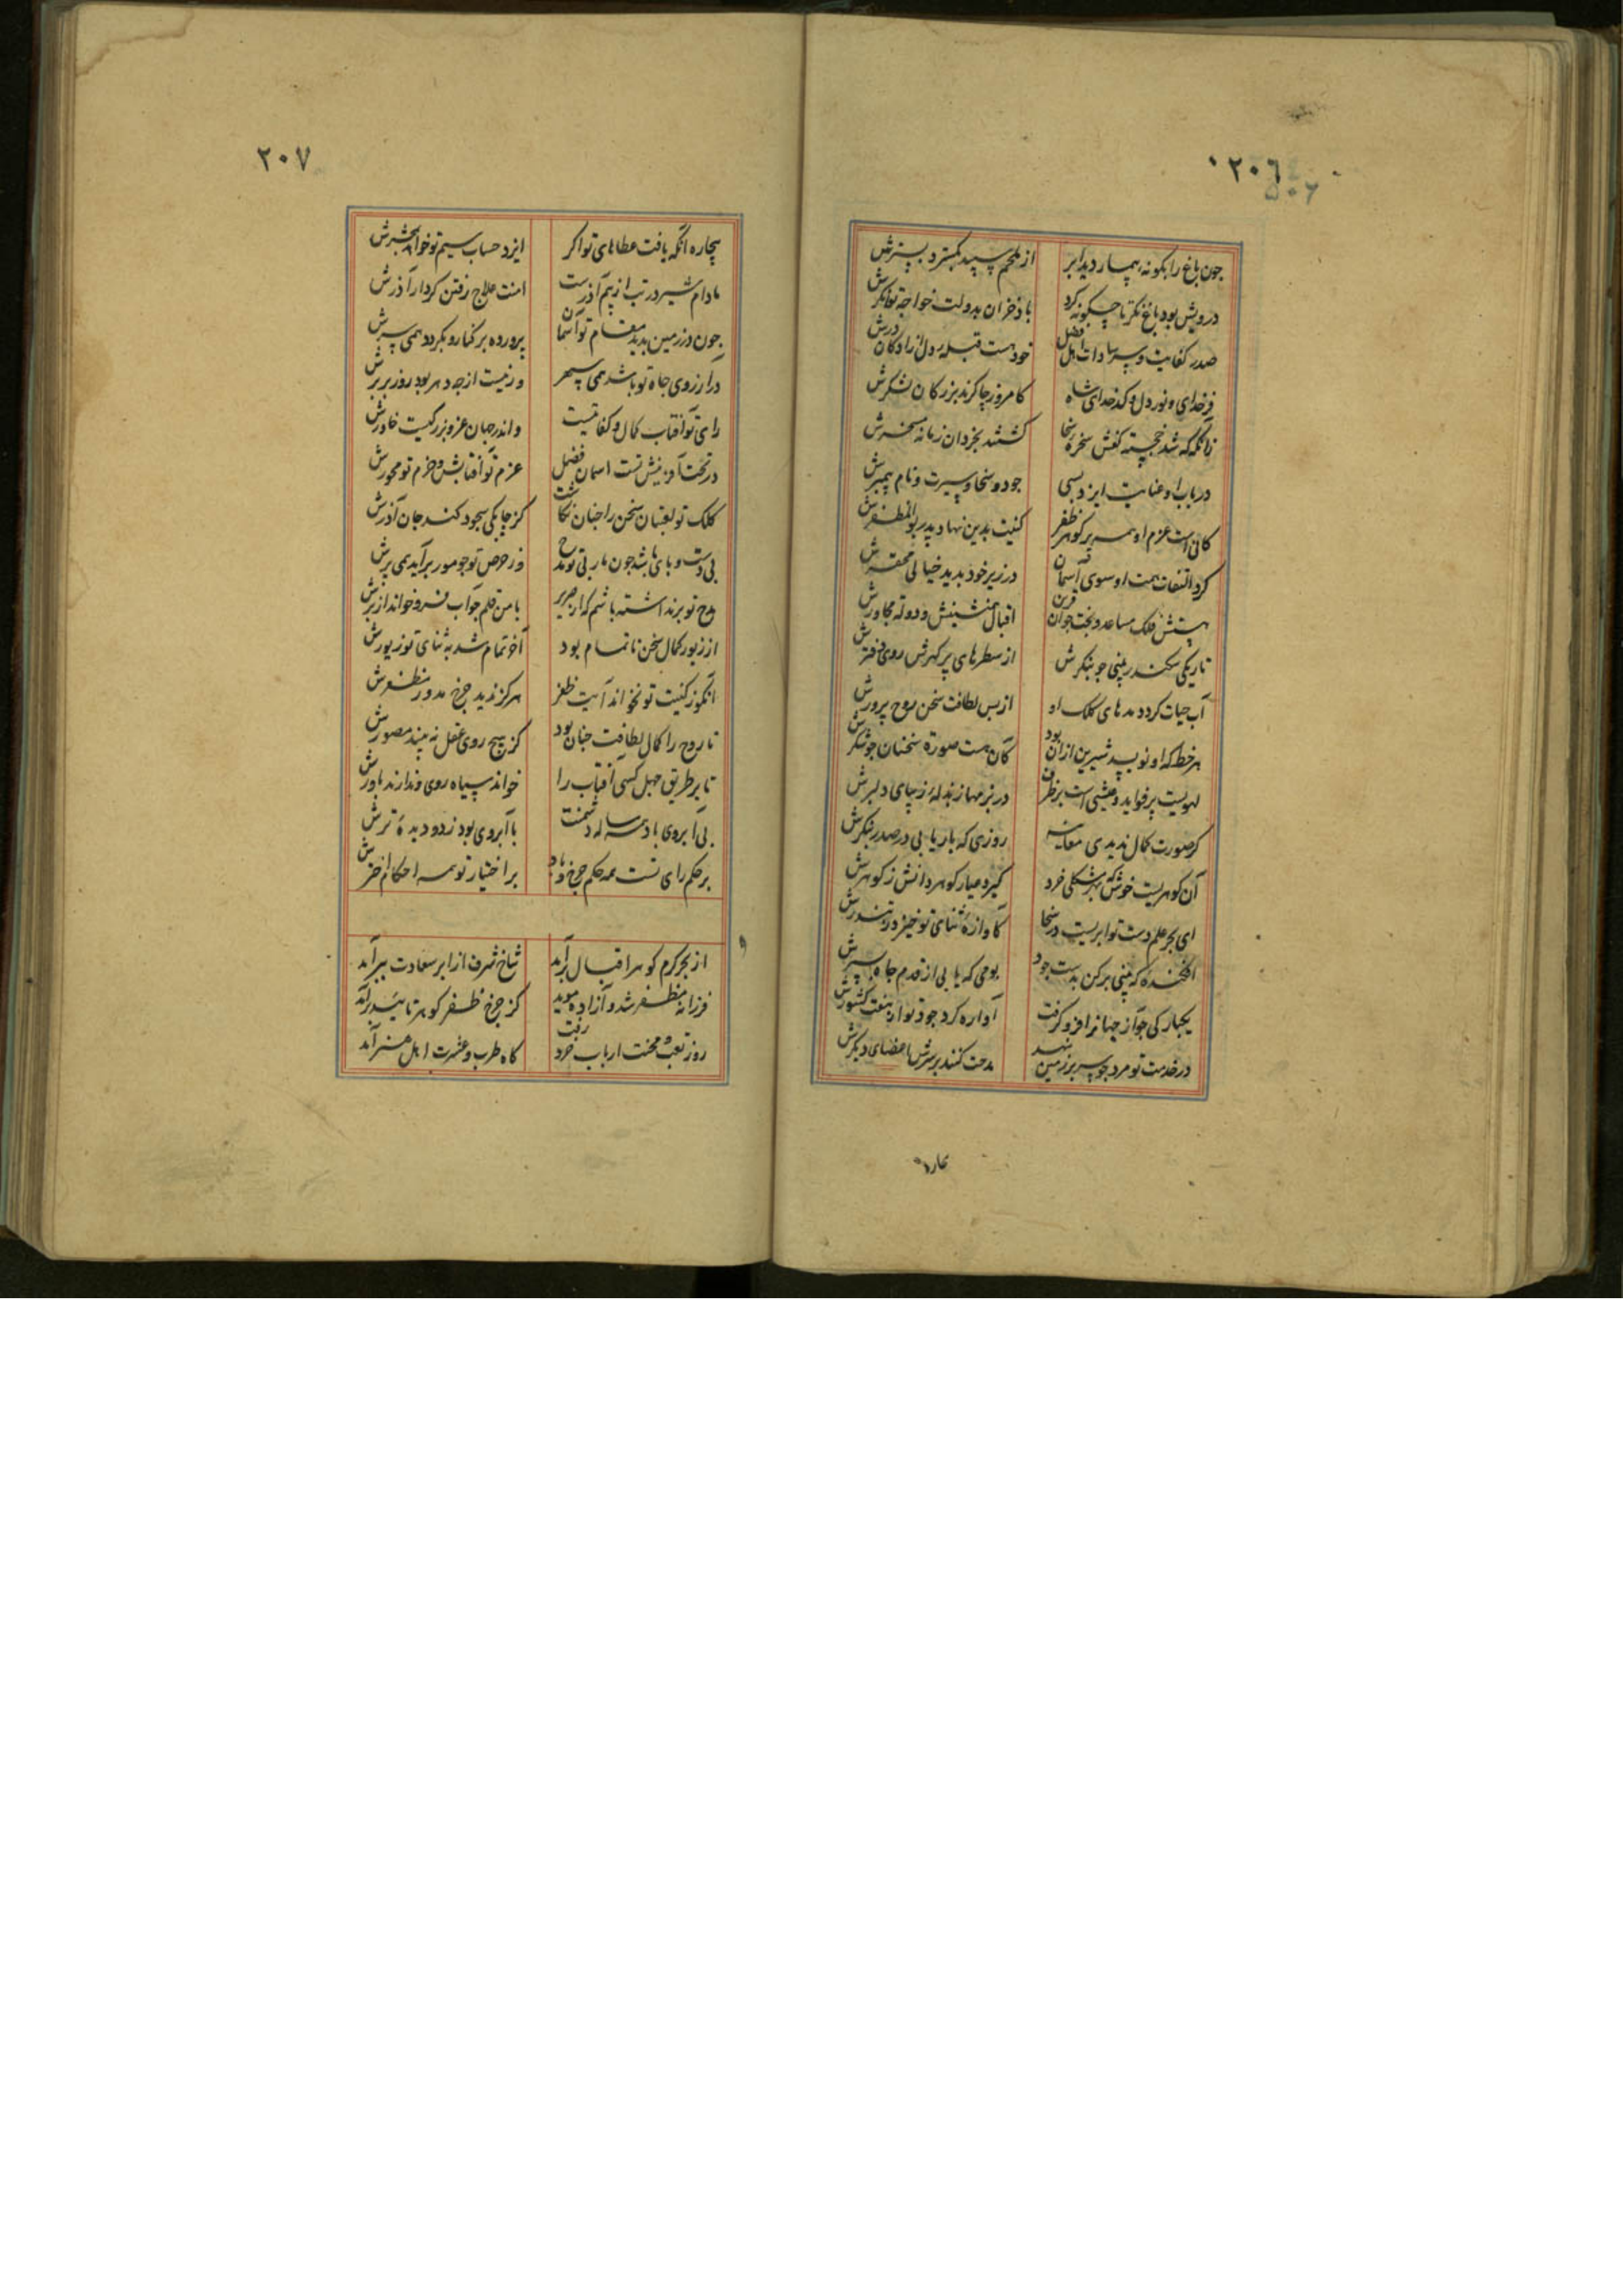 ۲۰٦
جون باغ را بکونه بیمار دید ابر از ملحم سپید بکسترد بسترش
درویش بود باغ نکر تا چکونه کرد باد خزان بدولت خواجه توانکرش
صدر کفایت و سر سادات اهل فضل خود هست قبله دل آزادکان درش
فر خدای و نور دل و کدخدای شاه کامروز چاکرند بزرکان لشکرش
زانکه که شد خجسته کفش سخره سخا کشتند بخردان زمانه مسخرش
در باب او عنایت ایزد بسی جود و سخا و سیرت و نام پیمبرش
کانی است عزم او همه پر کوهر ظفر کنیت بدین نهاد پدر بوالمظفرش
کرد التفات همت او سوی آسمان در زیر خود بدید خیالی محقرش
هستش فلک مساعد و بخت جوان قرین اقبال همنشینش و دولة مجاورش
تاریکی سکندر بینی جو بنکرش از سطرهای پر کهرش روی دفترش
آب حیات کردد مدهای کلک او از بس لطافت سخن روح پرورش
هر خط که او نویسد شیرین از آن بود کان هست صورة سخنان جو شکرش
لهویست پر فواید و عیشی است بر ظرف در بزمها ز بذله زیبای دلبرش
کر صورت کمال ندیدی معاینه روزی که بار یابی در صدر بنکرش
آن کوهریست خوش که بهر شکلی خرد کیرد عیار کوهر دانش ز کوهرش
ای بحر علم دست تو ابریست در سخا کاوازه ثنای تو خیزد ز تندرش
افکنده که بینی برکن بدست جود بومی که یابی از قدم جاه بسپرش
یکبارکی جو آز جهانرا فرو کرفت آواره کرد جود تو از هفت کشورش
در خدمت تو مرد جو سر بر زمین نهد مدحت کنند بر سرش اعضای دیکرش
۲۰۷
بیچاره آنکه یافت عطاهای تو اکر ایزد حساب سیم تو خواهد بمحشرش
مادام شیر در تب از بیم آذرست امنت علاج رفتن کردار آذرش
جون در زمین بدید مقام تو آسمان پرورده بر کنار و بکردد همی سرش
در آرزوی جاه تو باشد همی سپهر
رای تو آفتاب کمال و کفایتست واندر جهان عز و بزرکیست خاورش
در تحت آفرینش تست اسمان فضل عزم تو آفتابش و حزم تو محورش
کلک تو لعبتان سخن را جنان نکاشت کز چابکی سجود کند جان آذرش
بی دست و پای باشد جون مار بی تو مدح وز حرص تو جو مور برآید همی پرش
مدح تو برنداشته باشم که از صریر با من قلم جواب فرو خواند از برش
از زیور کمال سخن ناتمام بود آخر تمام شد به ثنای تو زیورش
آنکو ز کنیت تو نخواند آیت ظفر هرکز ندید جرخ مدور مظفرش
تا روح را کمال لطافت جنان بود کز هیچ روی عقل نه بیند مصورش
تا بر طریق جهل کسی آفتاب را خواند سیاه روی و ندارند باورش
بی آبروی باد همه ساله دشمنت با آبروی بود ز دو دیدهٔ ترش
بر حکم رای تست همه حکم جرخ و باد بر اختیار تو همه احکام اخترش
از بحر کرم کوهر اقبال برآمد شاخ شرف از ابر سعادت ببر آمد
فرزانه مظفر شد و آزاده موید کز جرخ ظفر کوهر تائید برآمد
روز تعب و محنت ارباب خرد رفت کاه طرب و عشرت اهل هنر آمد